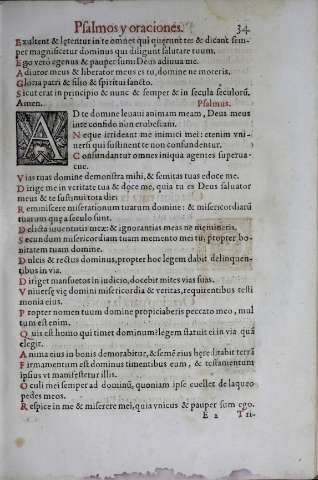 Psalmos y oraciones. 34
Exultent & letentur in te omnes qui querunt te: & dicant sem-
per magnificetur dominus qui diligunt salutare tuum.
Ego vero egenus & pauper sum: Deus adiuua me.
Adiutor meus & liberator meus es tu, domine ne moreris.
Gloria patri & filio & spiritui sancto.
Sicut erat in principio & nunc & semper & in secula seculorũ.
Amen. Psalmus.
AD te domine leuaui animam meam, Deus meus
in te confido non erubescam.
Neque irrideant me inimici mei: etenim vni-
uersi qui sustinent te non confundentur.
Confundantur omnes iniqua agentes superua-
cue.
Vias tuas domine demonstra mihi, & semitas tuas edoce me.
Dirige me in veritate tua & doce me, quia tu es Deus saluator
meus & te sustinui tota die.
Reminiscere miserationum tuarum domine: & misericordiarũ
tuarum que a seculo sunt.
Delicta iuuentutis mee: & ignorantias meas ne memineris.
Secundum misericordiam tuam memento mei tu, propter bo-
nitatem tuam domine.
Dulcis & rectus dominus, propter hoc legem dabit delinquen-
tibus in via.
Diriget mansuetos in iudicio, docebit mites vias suas.
Vniuerse vie domini misericordia & veritas, requirentibus testi
monia eius.
Propter nomen tuum domine propiciaberis peccato meo, mul
tum est enim.
Quis est homo qui timet dominum? legem statuit ei in via quã
elegit.
Anima eius in bonis demorabitur, & semẽ eius hereditabit terrã
Firmamentum est dominus timentibus eum, & testamentum
ipsius vt manifestetur illis.
Oculi mei semper ad dominũ, quoniam ipse euellet de laqueo
pedes meos.
Respice in me & miserere mei, quia vnicus & pauper sum ego.
E 2 Tri-